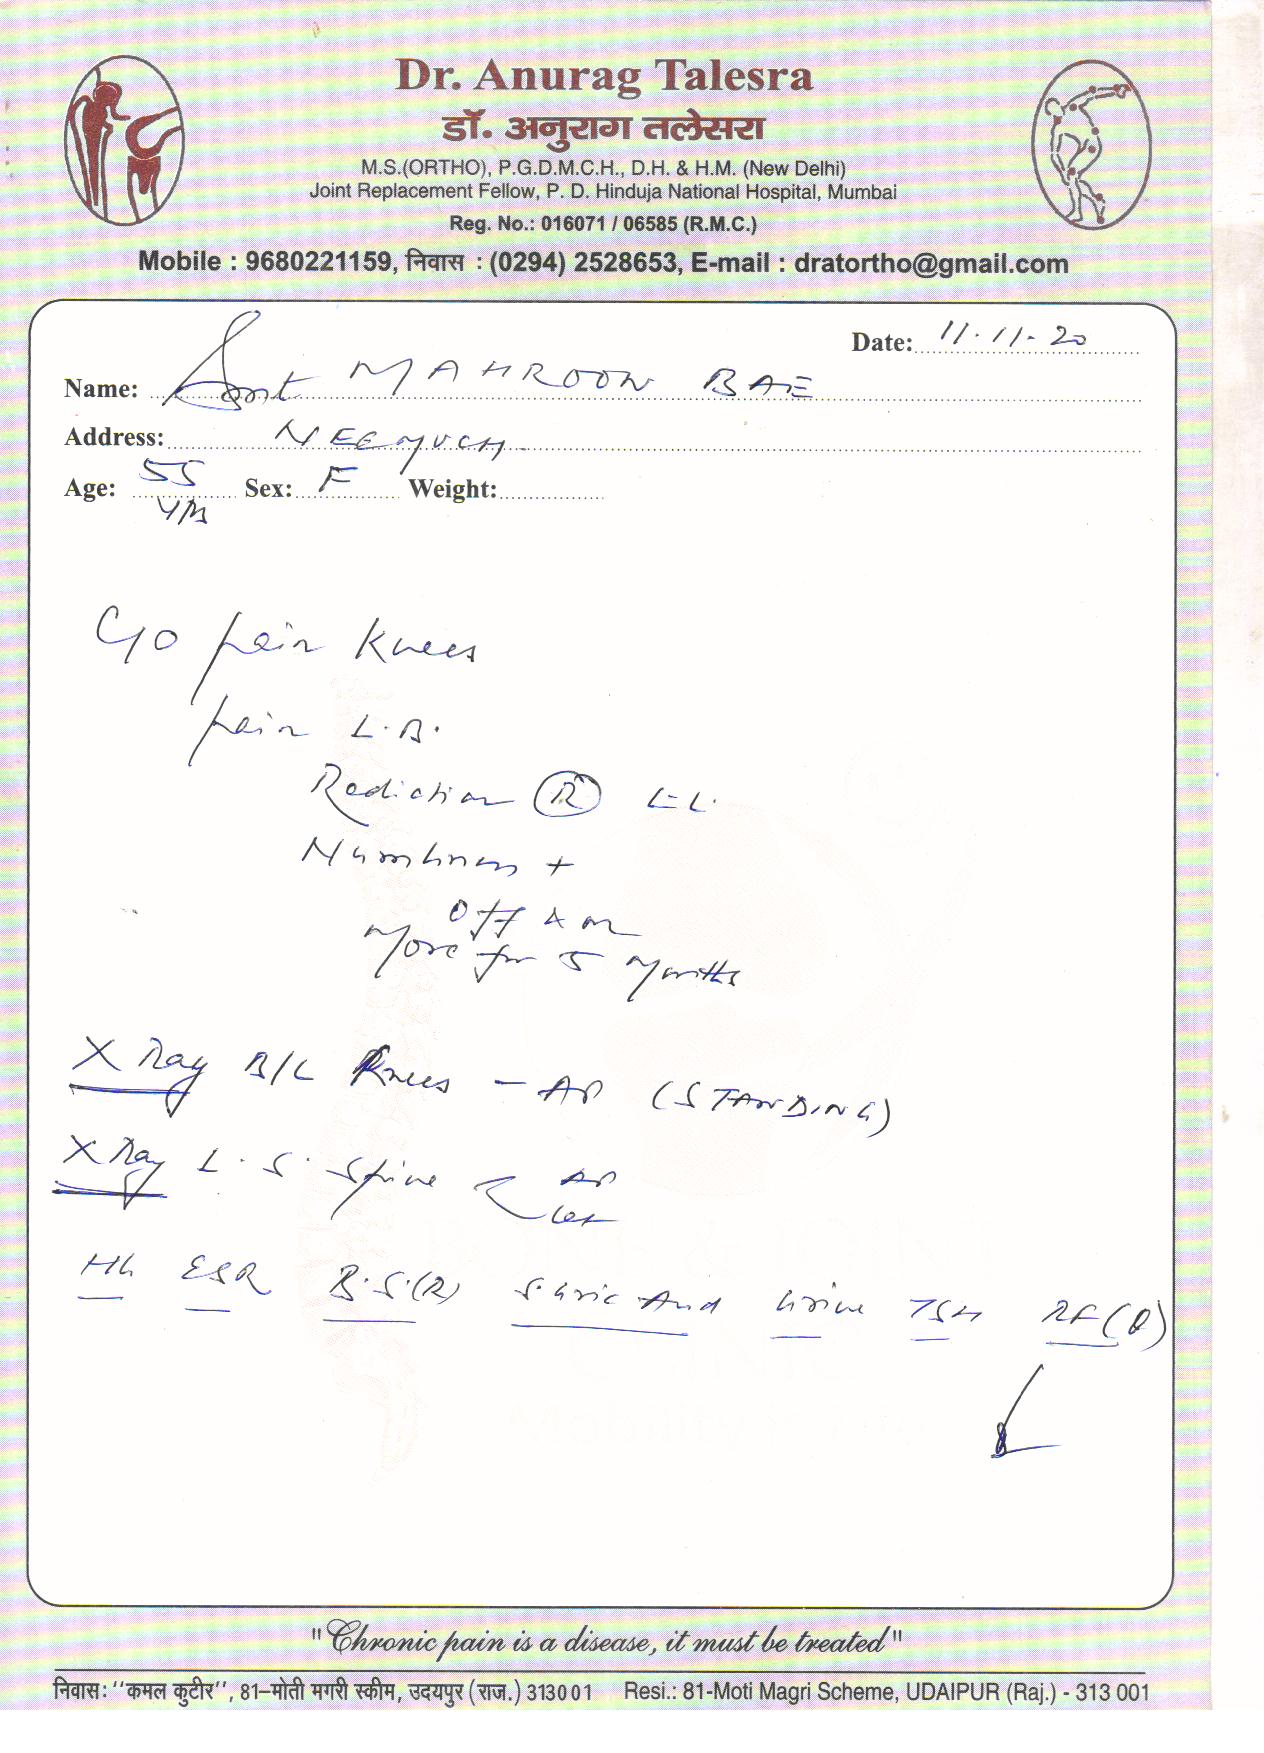 Dr. Anurag Talesra
डॉ. अनुराग तलेसरा
M.S.(ORTHO), P.G.D.M.C.H., D.H. & H.M. (New Delhi)
Joint Replacement Fellow, P. D. Hinduja National Hospital, Mumbai
Reg. No.: 016071 / 06585 (R.M.C.)
Mobile : 9680221159, निवास : (0294) 2528653, E-mail : dratortho@gmail.com
Date: 11.11.20
Name: Smt MAHROON BAE
Address: NEEMUCH
Age: 55 Yrs Sex: F Weight:
C/O Pain Knees
Pain L.B.
Radiation (R) L.L.
Numbness +
Off & on
More for 5 Months
X Ray B/L Knees - AP (STANDING)
X Ray L.S. Spine < AP
Lat
Hb ESR B.S.(R) S. Uric Acid Urine TSH RF (Q)
"Chronic pain is a disease, it must be treated"
निवास: ''कमल कुटीर'', 81–मोती मगरी स्कीम, उदयपुर (राज.) 313001 Resi.: 81-Moti Magri Scheme, UDAIPUR (Raj.) - 313 001